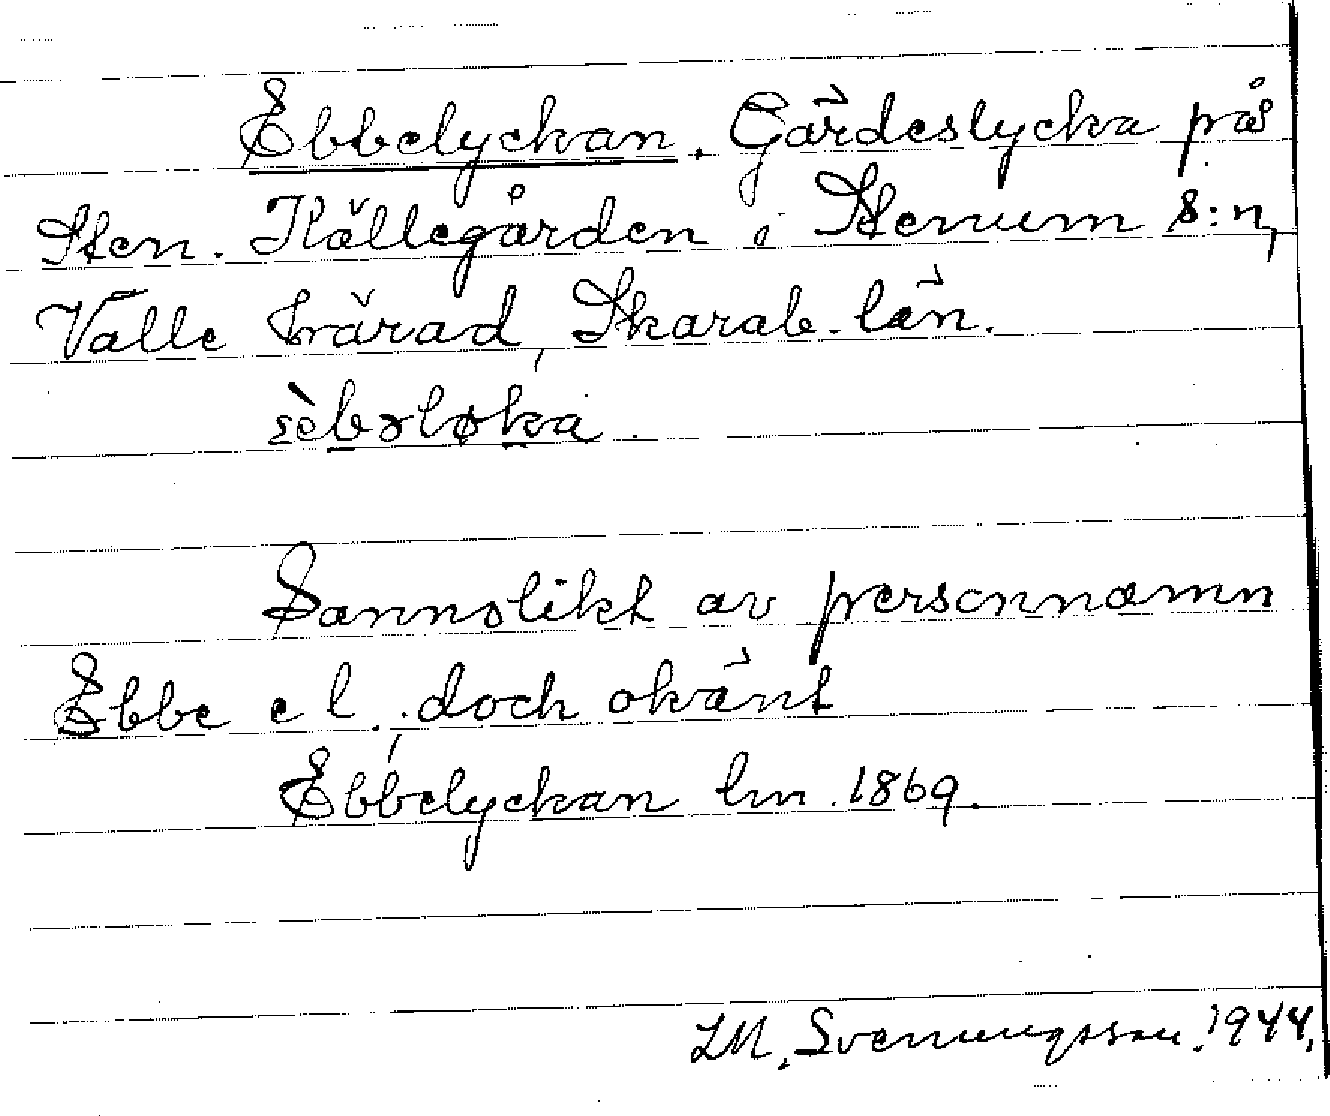 Ebbelyckan. Gärdeslycka på
Sten. Hällegården i Stenum s:n,
Valle härad, Skarab. län.
Sannolikt av personnamn
Ebbe el., doch okänt
Ebbelyckan lm. 1869.
L M. Svenungsson. 1944.